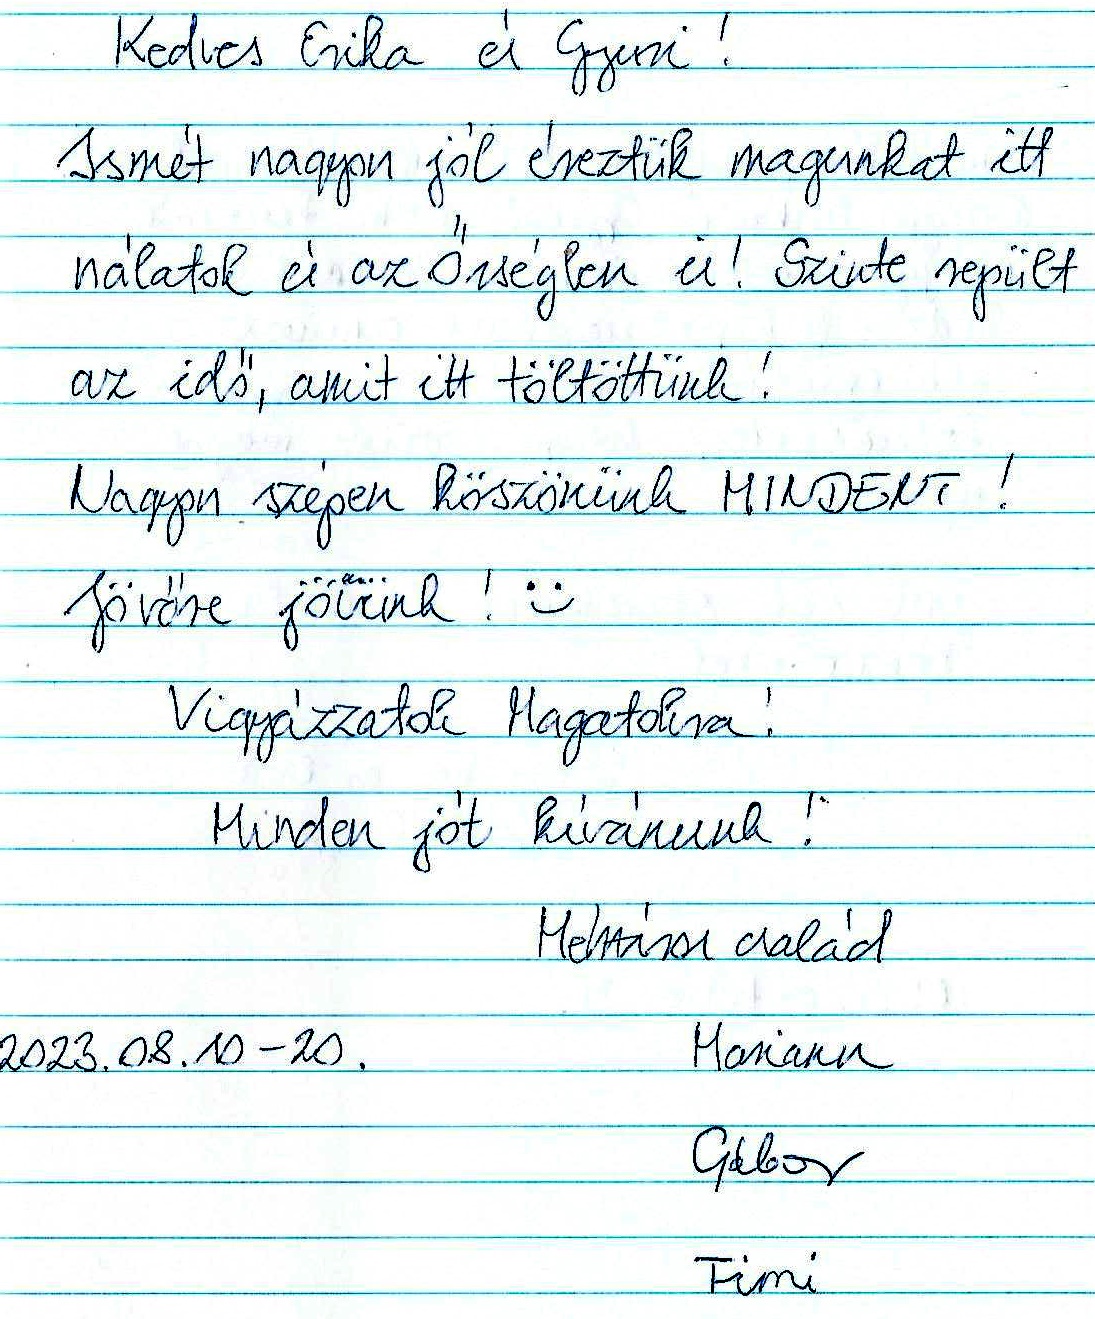 Kedves Erika és Gyuri!
Ismét nagyon jól éreztük magunkat itt
nálatok és az Őrségben is! Szinte repült
az idő, amit itt töltöttünk!
Nagyon szépen köszönünk MINDENT!
Jövőre jövünk! :)
Vigyázzatok Magatokra!
Minden jót kívánunk!
család
2023.08.10-20. Mariann
Gábor
Timi